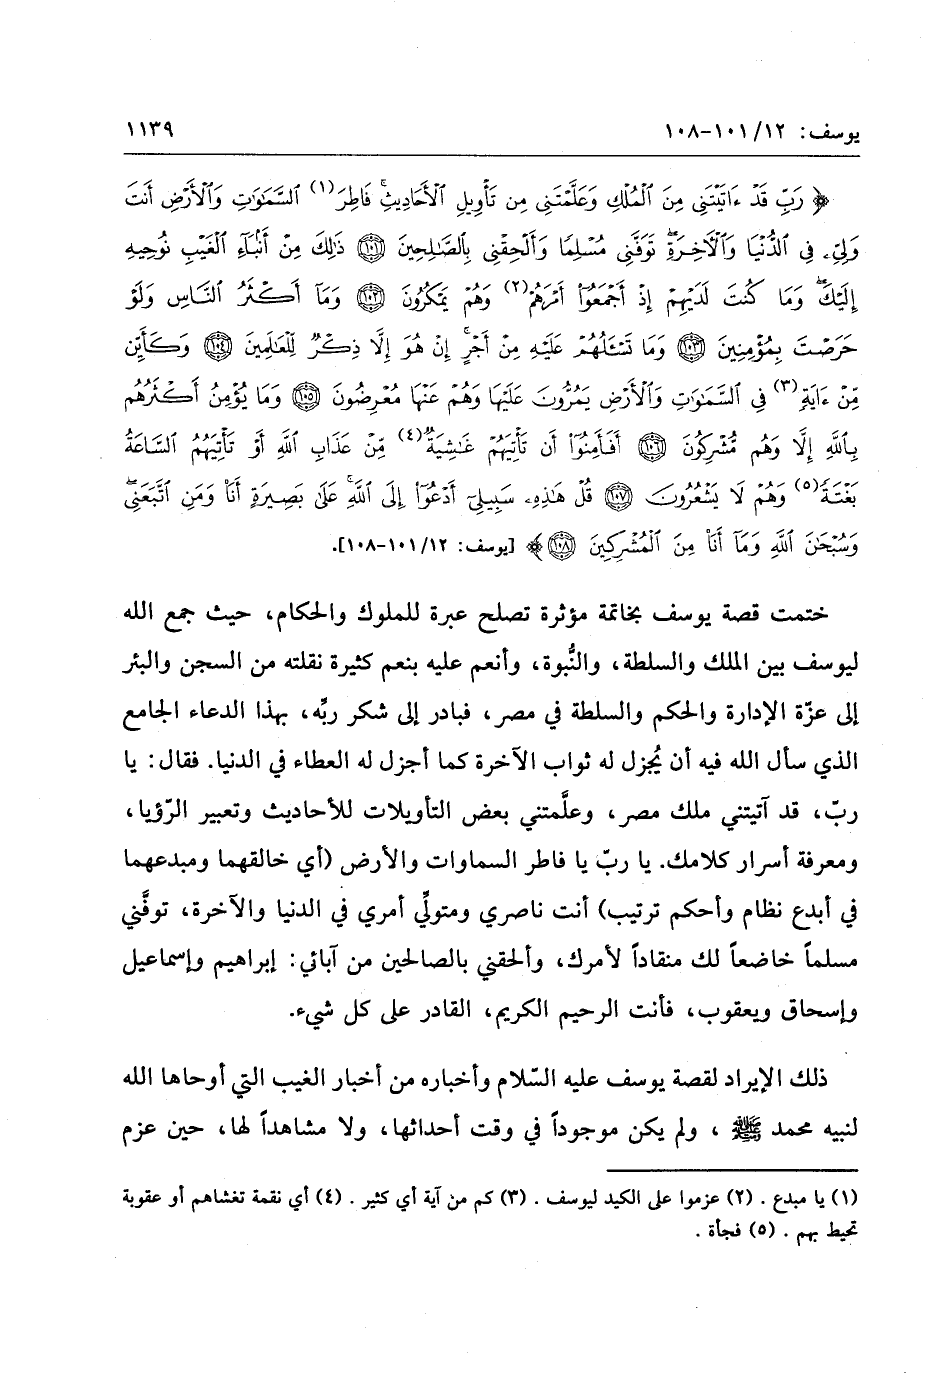 يوسف: ١٢/ ١٠١-١٠٨ ١١٣٩
﴿ رَبِّ قَدْ ءَاتَيْتَنِى مِنَ ٱلْمُلْكِ وَعَلَّمْتَنِى مِن تَأْوِيلِ ٱلْأَحَادِيثِۚ فَاطِرَ(١) ٱلسَّمَٰوَٰتِ وَٱلْأَرْضِ أَنتَ
وَلِىِّۦ فِى ٱلدُّنْيَا وَٱلْءَاخِرَةِۖ تَوَفَّنِى مُسْلِمًا وَأَلْحِقْنِى بِٱلصَّٰلِحِينَ ١٠١ ذَٰلِكَ مِنْ أَنۢبَآءِ ٱلْغَيْبِ نُوحِيهِ
إِلَيْكَۖ وَمَا كُنتَ لَدَيْهِمْ إِذْ أَجْمَعُوٓا۟ أَمْرَهُمْ(٢) وَهُمْ يَمْكُرُونَ ١٠٢ وَمَآ أَكْثَرُ ٱلنَّاسِ وَلَوْ
حَرَصْتَ بِمُؤْمِنِينَ ١٠٣ وَمَا تَسْـَٔلُهُمْ عَلَيْهِ مِنْ أَجْرٍۚ إِنْ هُوَ إِلَّا ذِكْرٌ لِّلْعَٰلَمِينَ ١٠٤ وَكَأَيِّن
مِّنْ ءَايَةٍ(٣) فِى ٱلسَّمَٰوَٰتِ وَٱلْأَرْضِ يَمُرُّونَ عَلَيْهَا وَهُمْ عَنْهَا مُعْرِضُونَ ١٠٥ وَمَا يُؤْمِنُ أَكْثَرُهُم
بِٱللَّهِ إِلَّا وَهُم مُّشْرِكُونَ ١٠٦ أَفَأَمِنُوٓا۟ أَن تَأْتِيَهُمْ غَٰشِيَةٌ(٤) مِّنْ عَذَابِ ٱللَّهِ أَوْ تَأْتِيَهُمُ ٱلسَّاعَةُ
بَغْتَةً(٥) وَهُمْ لَا يَشْعُرُونَ ١٠٧ قُلْ هَٰذِهِۦ سَبِيلِىٓ أَدْعُوٓا۟ إِلَى ٱللَّهِۚ عَلَىٰ بَصِيرَةٍ أَنَا۠ وَمَنِ ٱتَّبَعَنِىۖ
وَسُبْحَٰنَ ٱللَّهِ وَمَآ أَنَا۠ مِنَ ٱلْمُشْرِكِينَ ١٠٨ ﴾ [يوسف: ١٢/ ١٠١-١٠٨].
ختمت قصة يوسف بخاتمة مؤثرة تصلح عبرة للملوك والحكام، حيث جمع الله
ليوسف بين الملك والسلطة، والنُّبوة، وأنعم عليه بنعم كثيرة نقلته من السجن والبئر
إلى عزّة الإدارة والحكم والسلطة في مصر، فبادر إلى شكر ربِّه، بهذا الدعاء الجامع
الذي سأل الله فيه أن يُجزل له ثواب الآخرة كما أجزل له العطاء في الدنيا. فقال: يا
ربّ، قد آتيتني ملك مصر، وعلَّمتني بعض التأويلات للأحاديث وتعبير الرّؤيا،
ومعرفة أسرار كلامك. يا ربّ يا فاطر السماوات والأرض (أي خالقهما ومبدعهما
في أبدع نظام وأحكم ترتيب) أنت ناصري ومتولِّي أمري في الدنيا والآخرة، توفَّني
مسلماً خاضعاً لك منقاداً لأمرك، وألحقني بالصالحين من آبائي: إبراهيم وإسماعيل
وإسحاق ويعقوب، فأنت الرحيم الكريم، القادر على كل شيء.
ذلك الإيراد لقصة يوسف عليه السّلام وأخباره من أخبار الغيب التي أوحاها الله
لنبيه محمد ﷺ ، ولم يكن موجوداً في وقت أحداثها، ولا مشاهداً لها، حين عزم
(١) يا مبدع . (٢) عزموا على الكيد ليوسف . (٣) كم من آية أي كثير . (٤) أي نقمة تغشاهم أو عقوبة
تحيط بهم . (٥) فجأة .